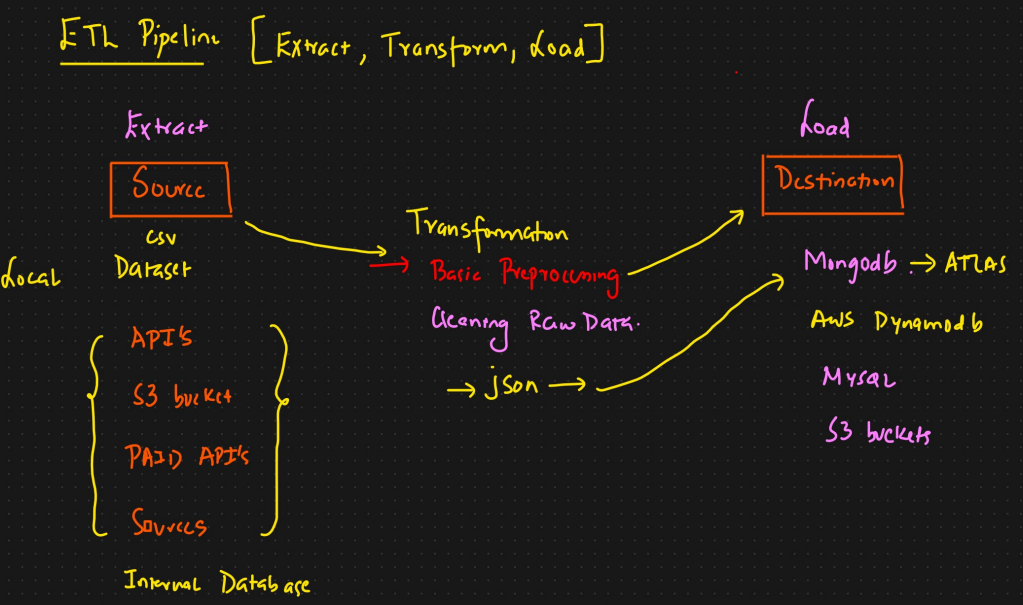 ETL Pipeline [Extract, Transform, Load]
Extract
Source
CSV
Local Dataset
API's
S3 bucket
PAID API's
Sources
Internal Database
Transformation
→ Basic Preprocessing
Cleaning Raw Data.
→ json →
Load
Destination
Mongodb. → ATLAS
AWS Dynamodb
Mysql
S3 buckets